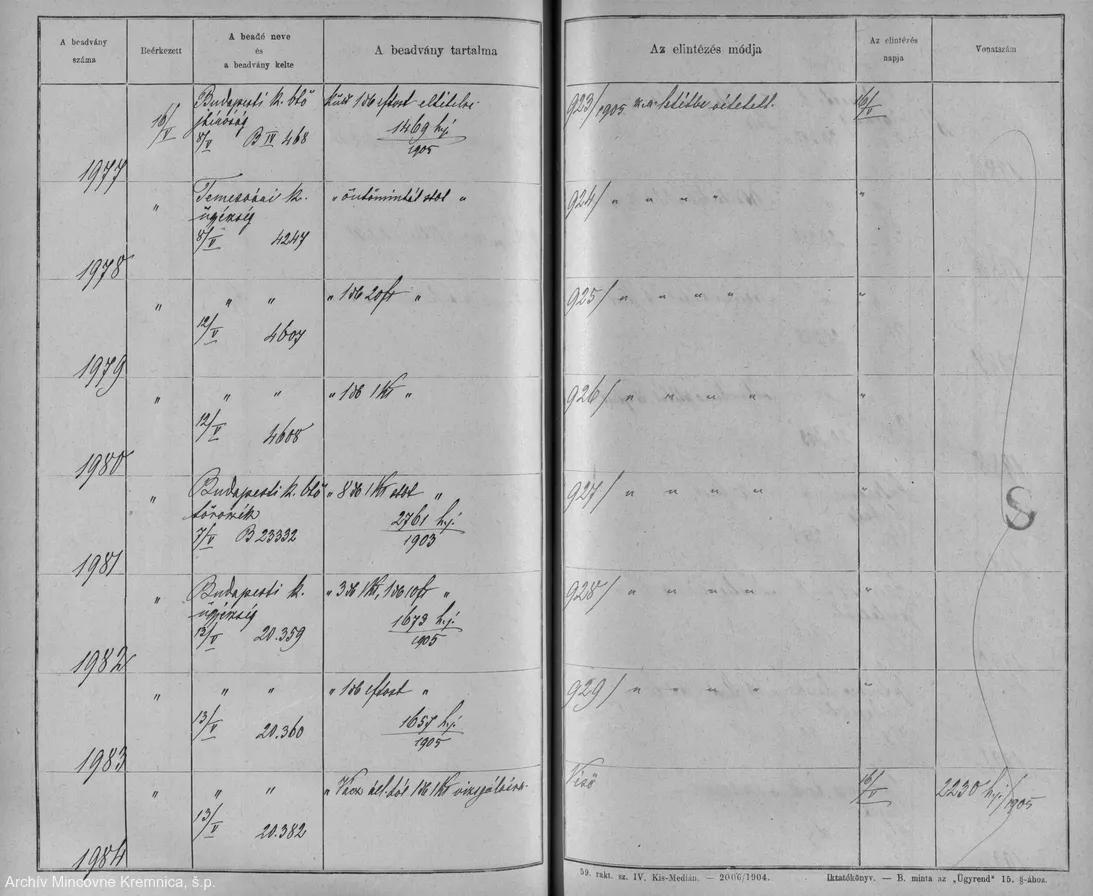 A beadvány száma
Beérkezett
A beadó neve és a beadvány kelte
A beadvány tartalma
Az elintézés módja
Az elintézés napja
Vonatszám
1977
16/V
Budapesti k. btő
8/V B IV 468
küld 1 db
1469 h.j.
1905
923/1905
letétbe vétetett.
16/V
1978
"
Temesvári k.
ügyészség
8/V 4247
" öntőmintát stbt "
924/ " " " "
"
1979
"
" "
12/V 4607
" 1 db 20 fr "
925/ " " " "
"
1980
"
" "
12/V 4608
" 1 db 1 Kr "
926/ " " " "
"
1981
"
Budapesti k. btő
törvszék
7/V B 23332
" 8 db 1 Kr stbt "
2761 h.j.
1903
927/ " " " "
"
1982
"
Budapesti k.
ügyészség
12/V 20.359
" 3 db 1 Kr, 1 db 10 fr "
1673 h.j.
1905
928/ " " " "
"
1983
"
" "
13/V 20.360
" 1 db "
1657 h.j.
1905
929/ " " " "
"
1984
"
" "
13/V 20.382
" 1 db 1 Kr vizsgálásra.
16/V
2230 h.j./1905
59. rakt. sz. IV. Kis-Medián. — 2006/1904.
Iktatókönyv. — B. minta az „Ügyrend" 15. §-ához.
Archív Mincovne Kremnica, š.p.